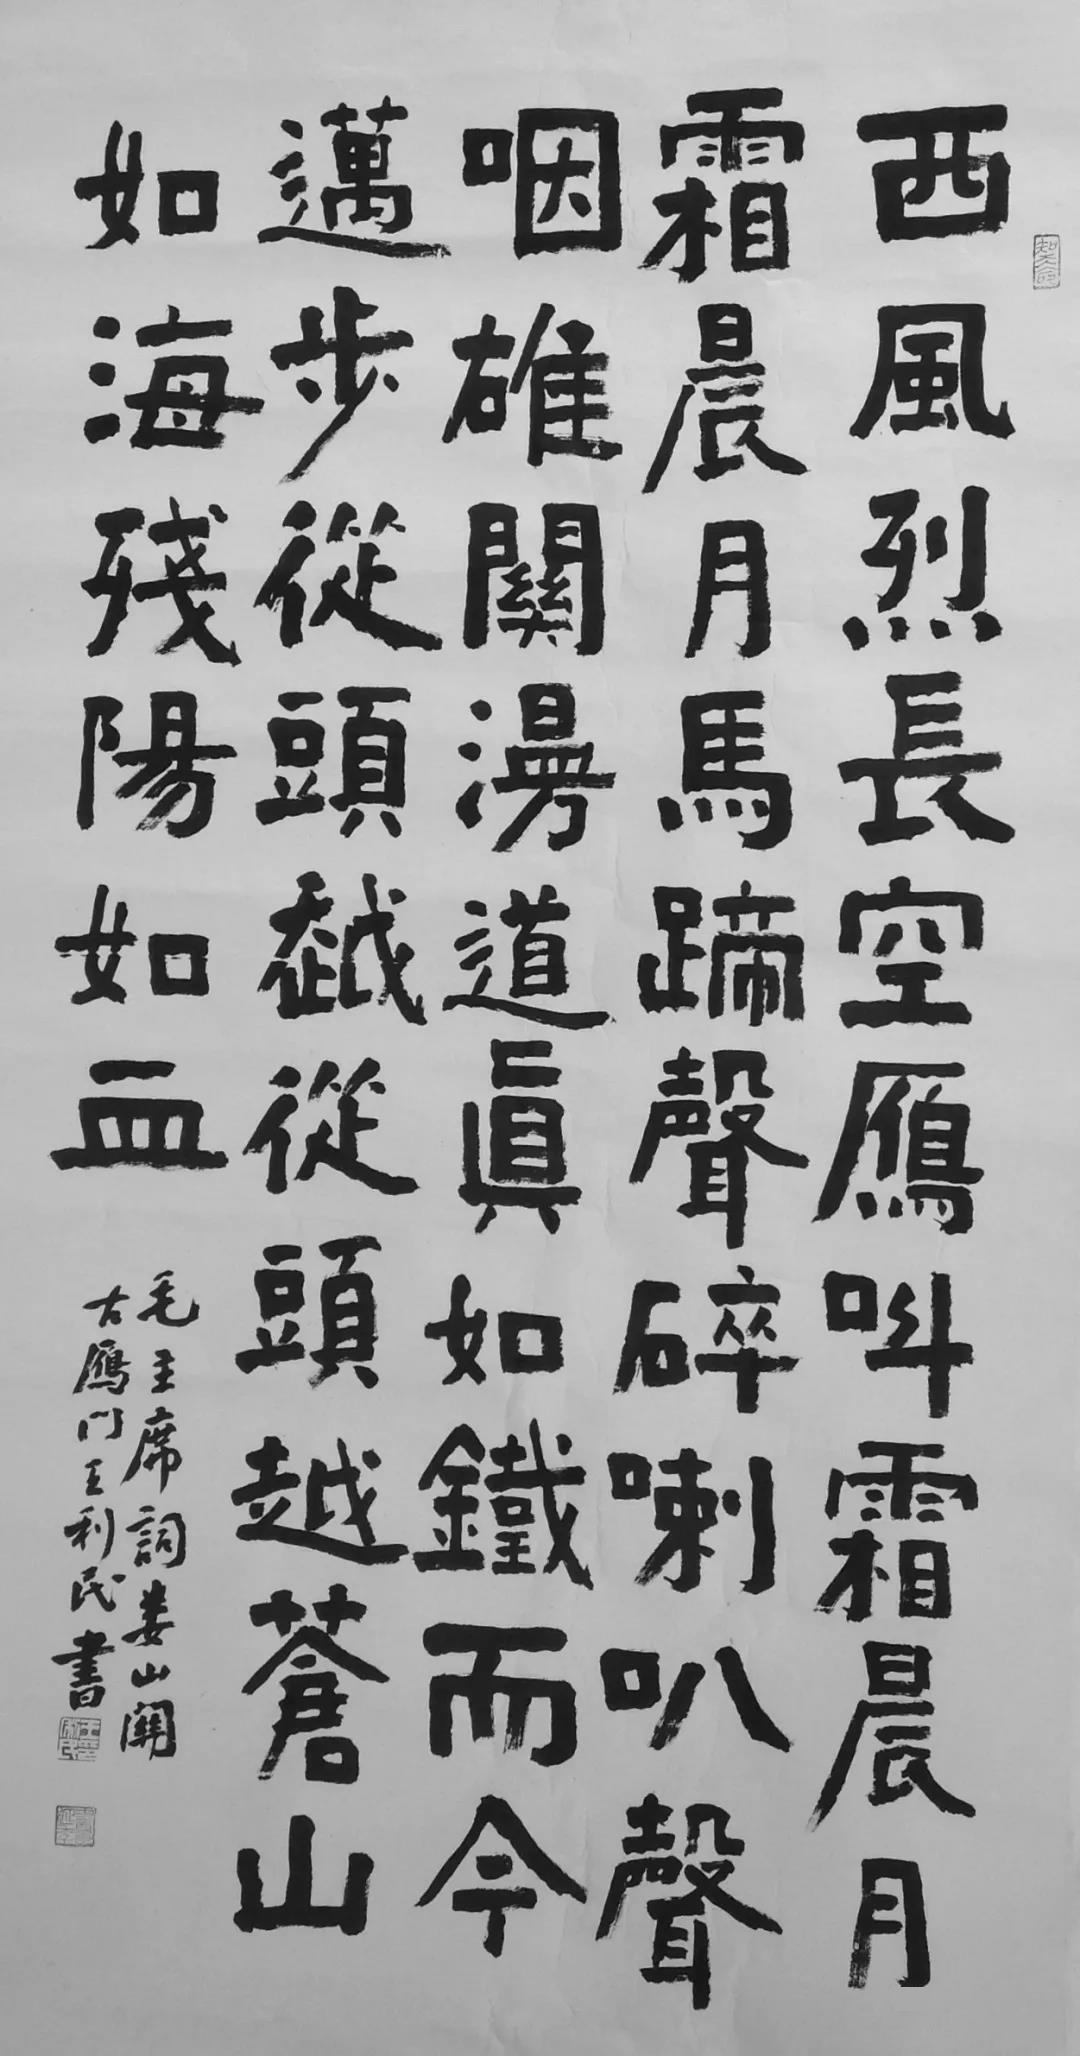 西風烈長空鴈叫霜晨月
霜晨月馬蹄聲碎喇叭聲
咽雄關漫道眞如鐵而今
邁步從頭越從頭越蒼山
如海殘陽如血
毛主席詞婁山關
古鴈門王利民書